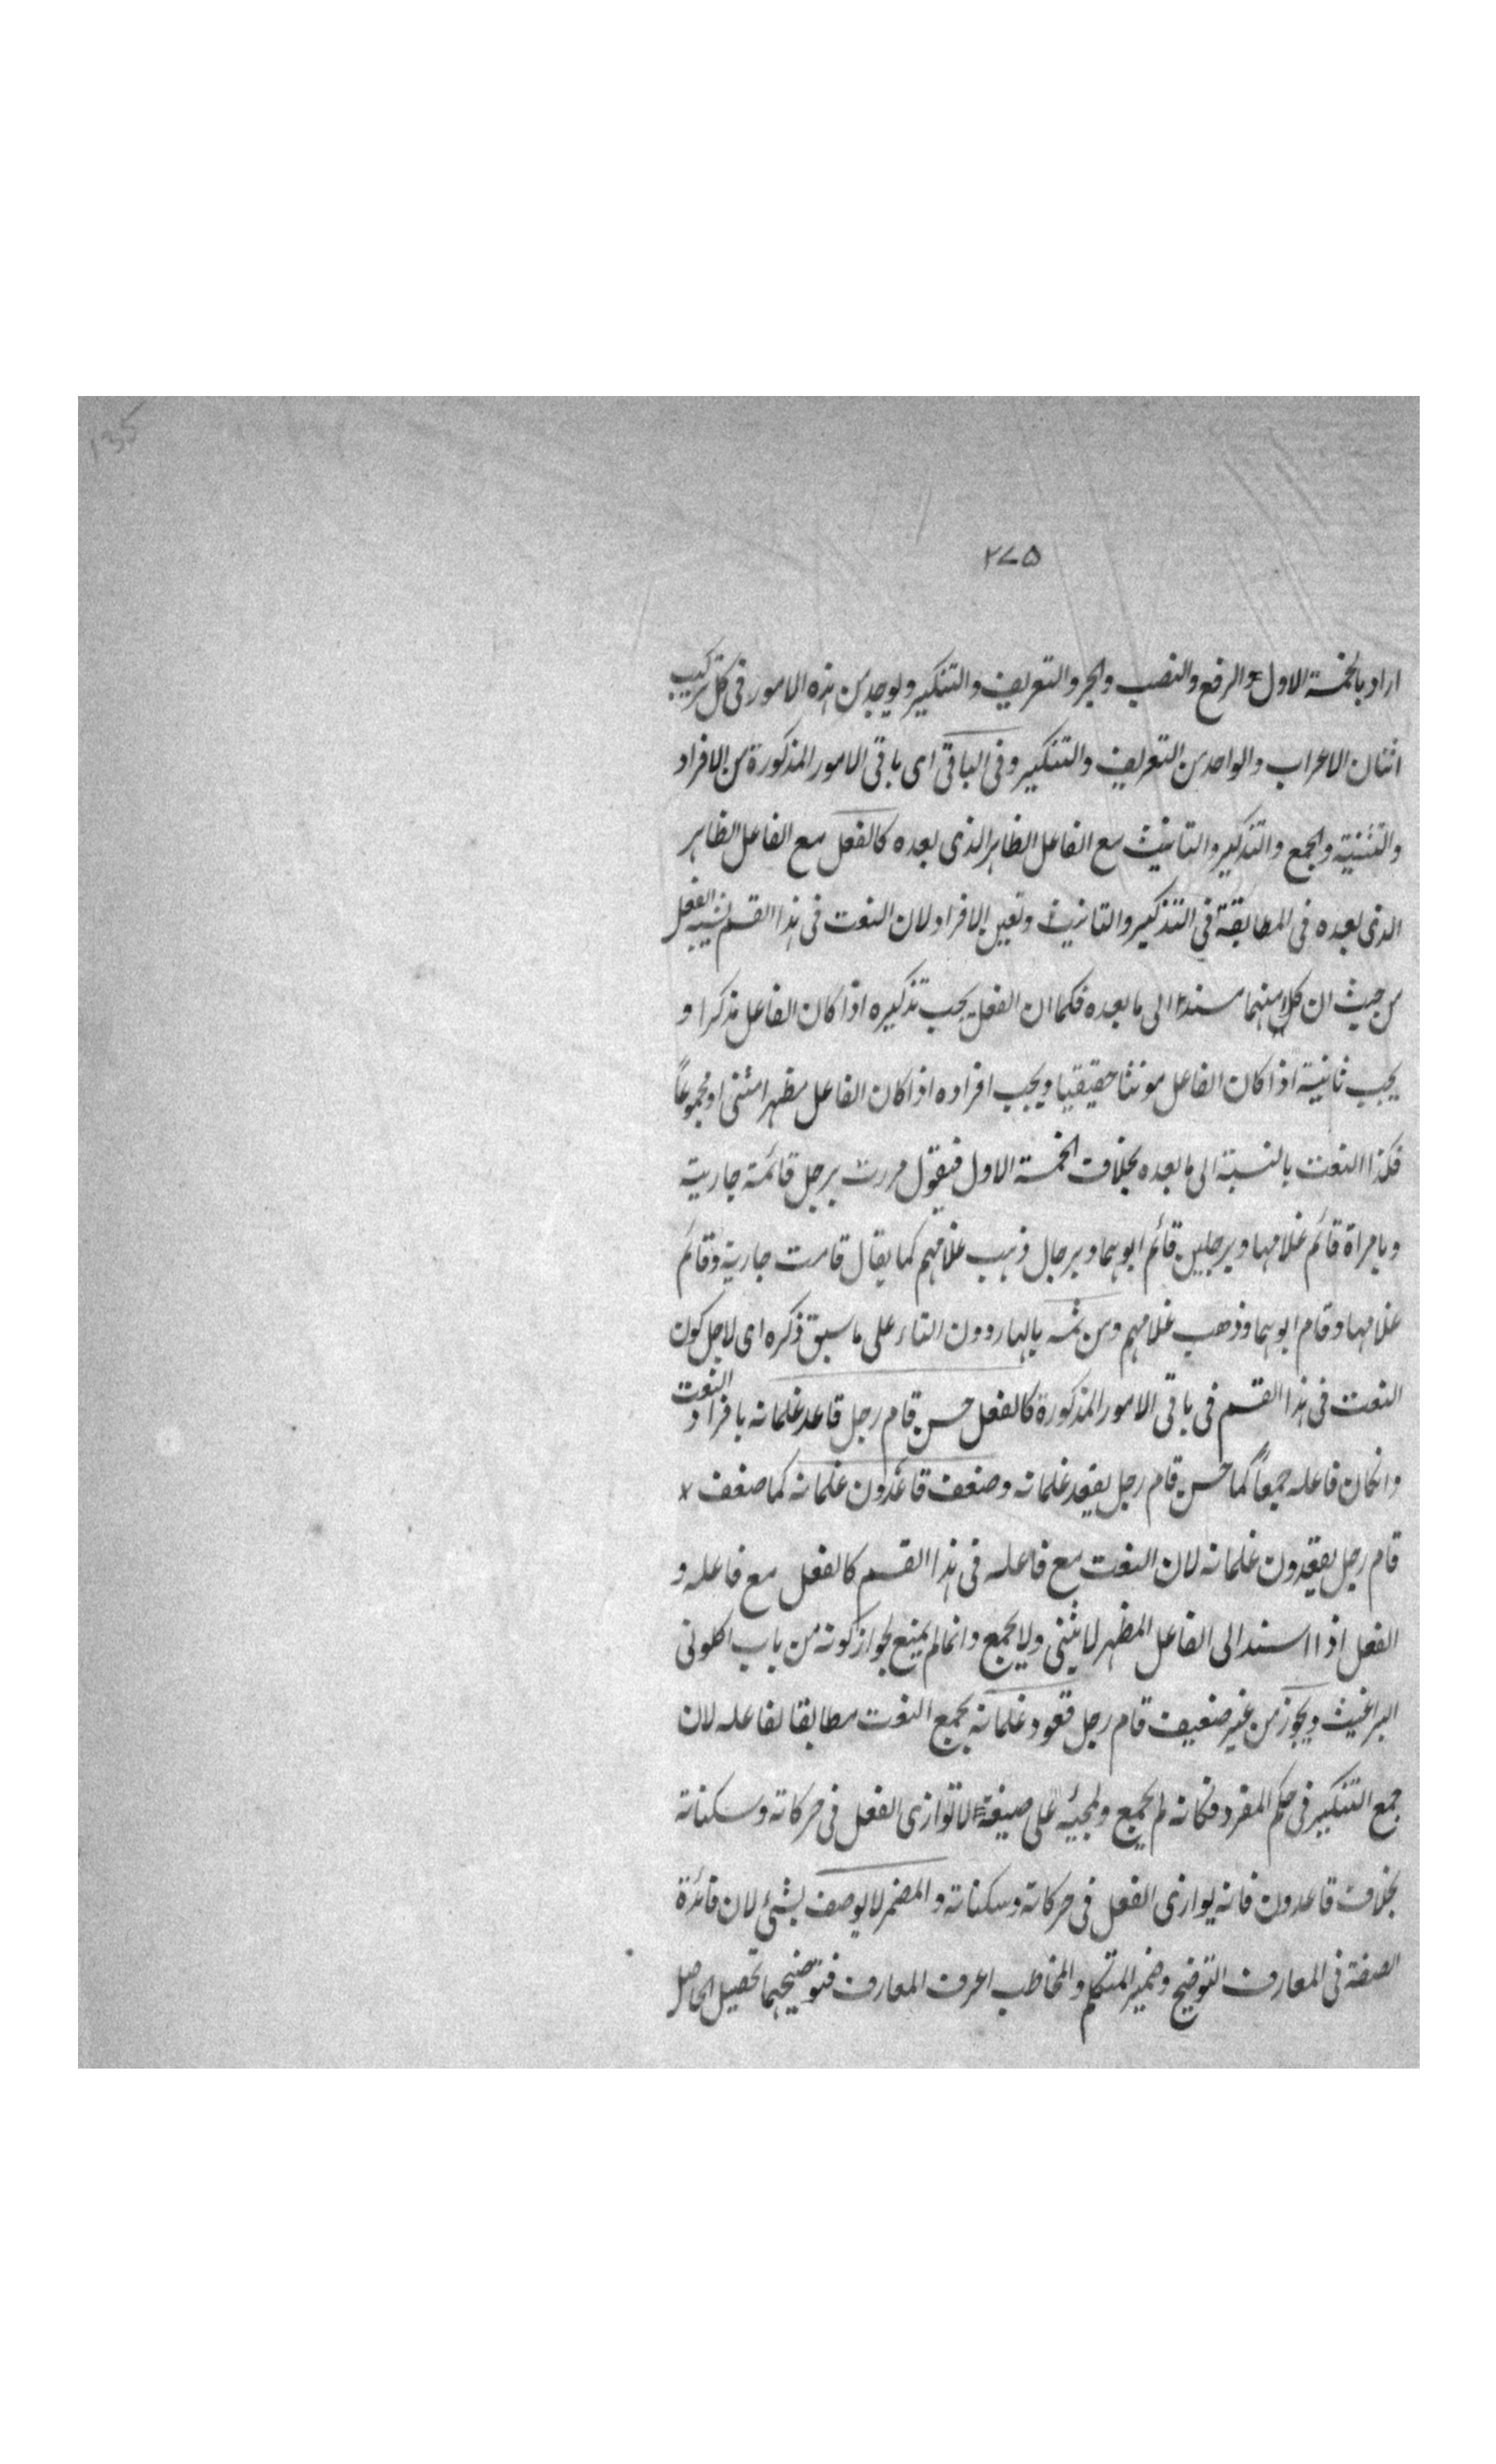 135
٢٧٥
اراد بالخمسة الاول الرفع والنصب والجر والتعريف والتنكير ويوجد من هذه الامور فى كل تركيب
اثنان الاعراب والواحد من التعريف والتنكير وفى الباقى اى باقى الامور المذكورة من الافراد
والتثنية والجمع والتذكير والتانيث مع الفاعل الظاهر الذى بعده كالفعل مع الفاعل الظاهر
الذى بعده فى المطابقة فى التذكير والتانيث وتعين الافراد لان النعت فى هذا القسم يشبه الفعل
من حيث ان كلا منهما مسند الى ما بعده فكما ان الفعل يجب تذكيره اذا كان الفاعل مذكرا و
يجب تانيثه اذا كان الفاعل مونثا حقيقيا ويجب افراده اذا كان الفاعل مظهرا مثنى او مجموعاً
فكذا النعت بالنسبة الى ما بعده بخلاف الخمسة الاول فيقول مررت برجل قائمة جارية
وبامراة قائم غلامها وبرجلين قائم ابوهما وبرجال ذهب غلامهم كما يقال قامت جارية وقائم
غلامها وقام ابوهما وذهب غلامهم ومن ثمه بالهاء دون التاء على ما سبق ذكره اى لاجل كون
النعت فى هذا القسم فى باقى الامور المذكورة كالفعل حسن قام رجل قاعد غلمانه بافراد النعت
وانكان فاعله جمعاً كما حسن قام رجل يقعد غلمانه وضعف قاعدون غلمانه كما ضعف
قام رجل يقعدون غلمانه لان النعت مع فاعله فى هذا القسم كالفعل مع فاعله و
الفعل اذا اسند الى الفاعل المظهر لا يثنى ولا يجمع وانما لم يمنع لجواز كونه من باب اكلونى
البراغيث ويجوز من غير ضعيف قام رجل قعود غلمانه بجمع النعت مطابقا لفاعله لان
جمع التنكير فى حكم المفرد فكانه لم يجمع ولمجيئه على صيغة لا توازى الفعل فى حركاته وسكناته
بخلاف قاعدون فانه يوازى الفعل فى حركاته وسكناته والمضمر لا يوصف بشئ لان فائدة
الصفة فى المعارف التوضيح وضمير المتكلم والمخاطب اعرف المعارف فتوضيحهما تحصيل الحاصل